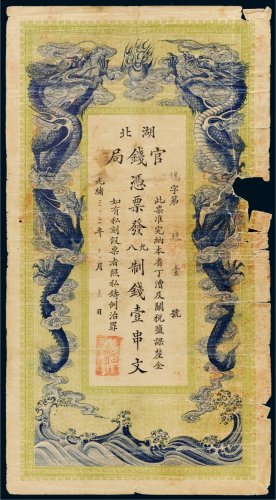 湖北
官錢局
字第
號
此票准完納本省丁漕及關稅鹽課釐金
憑票發九八制錢壹串文
如有私刻假票者照私鑄例治罪
光緒
年
月
日